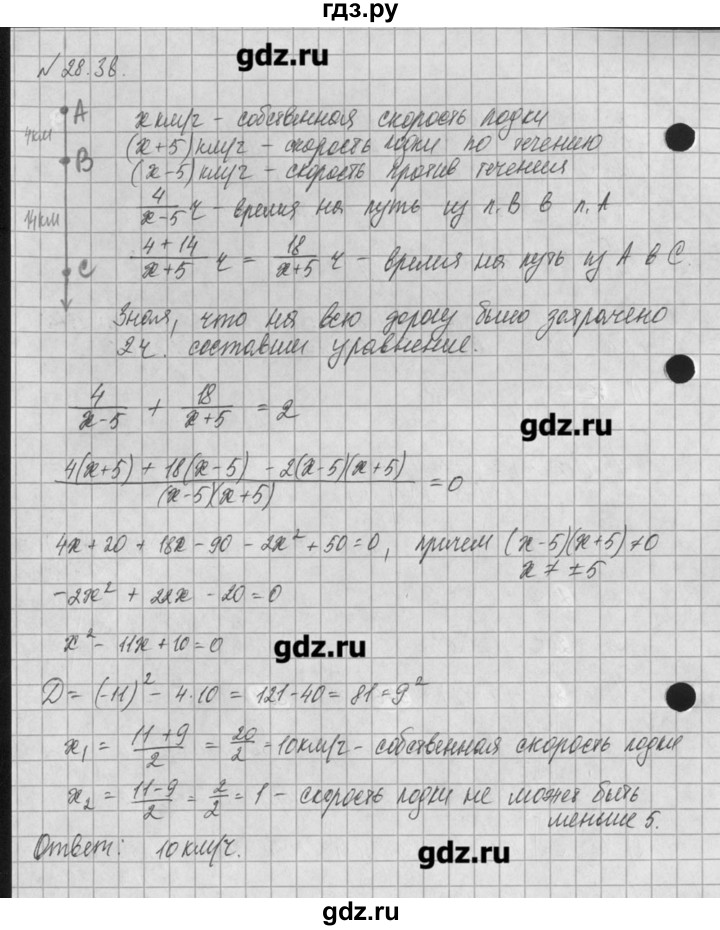 гдз.ру
gdz.ru
№ 28.38.
A
4км
B
14км
C
x км/ч - собственная скорость лодки
(x+5) км/ч - скорость лодки по течению
(x-5) км/ч - скорость против течения
4/(x-5) ч - время на путь из п. B в п. A
(4+14)/(x+5) ч = 18/(x+5) ч - время на путь из A в C.
Зная, что на всю дорогу было затрачено
2ч. составим уравнение.
4/(x-5) + 18/(x+5) = 2
gdz.ru
(4(x+5) + 18(x-5) - 2(x-5)(x+5))/((x-5)(x+5)) = 0
4x+20 + 18x-90 - 2x² + 50=0, причем (x-5)(x+5) ≠0
x ≠ ±5
-2x² + 22x - 20=0
x² - 11x + 10=0
gdz.ru
D= (-11)² - 4·10 = 121-40= 81=9²
x₁ = (11+9)/2 = 20/2 =10км/ч - собственная скорость лодки
x₂ = (11-9)/2 = 2/2 = 1 - скорость лодки не может быть
меньше 5.
Ответ: 10 км/ч.
gdz.ru
gdz.ru